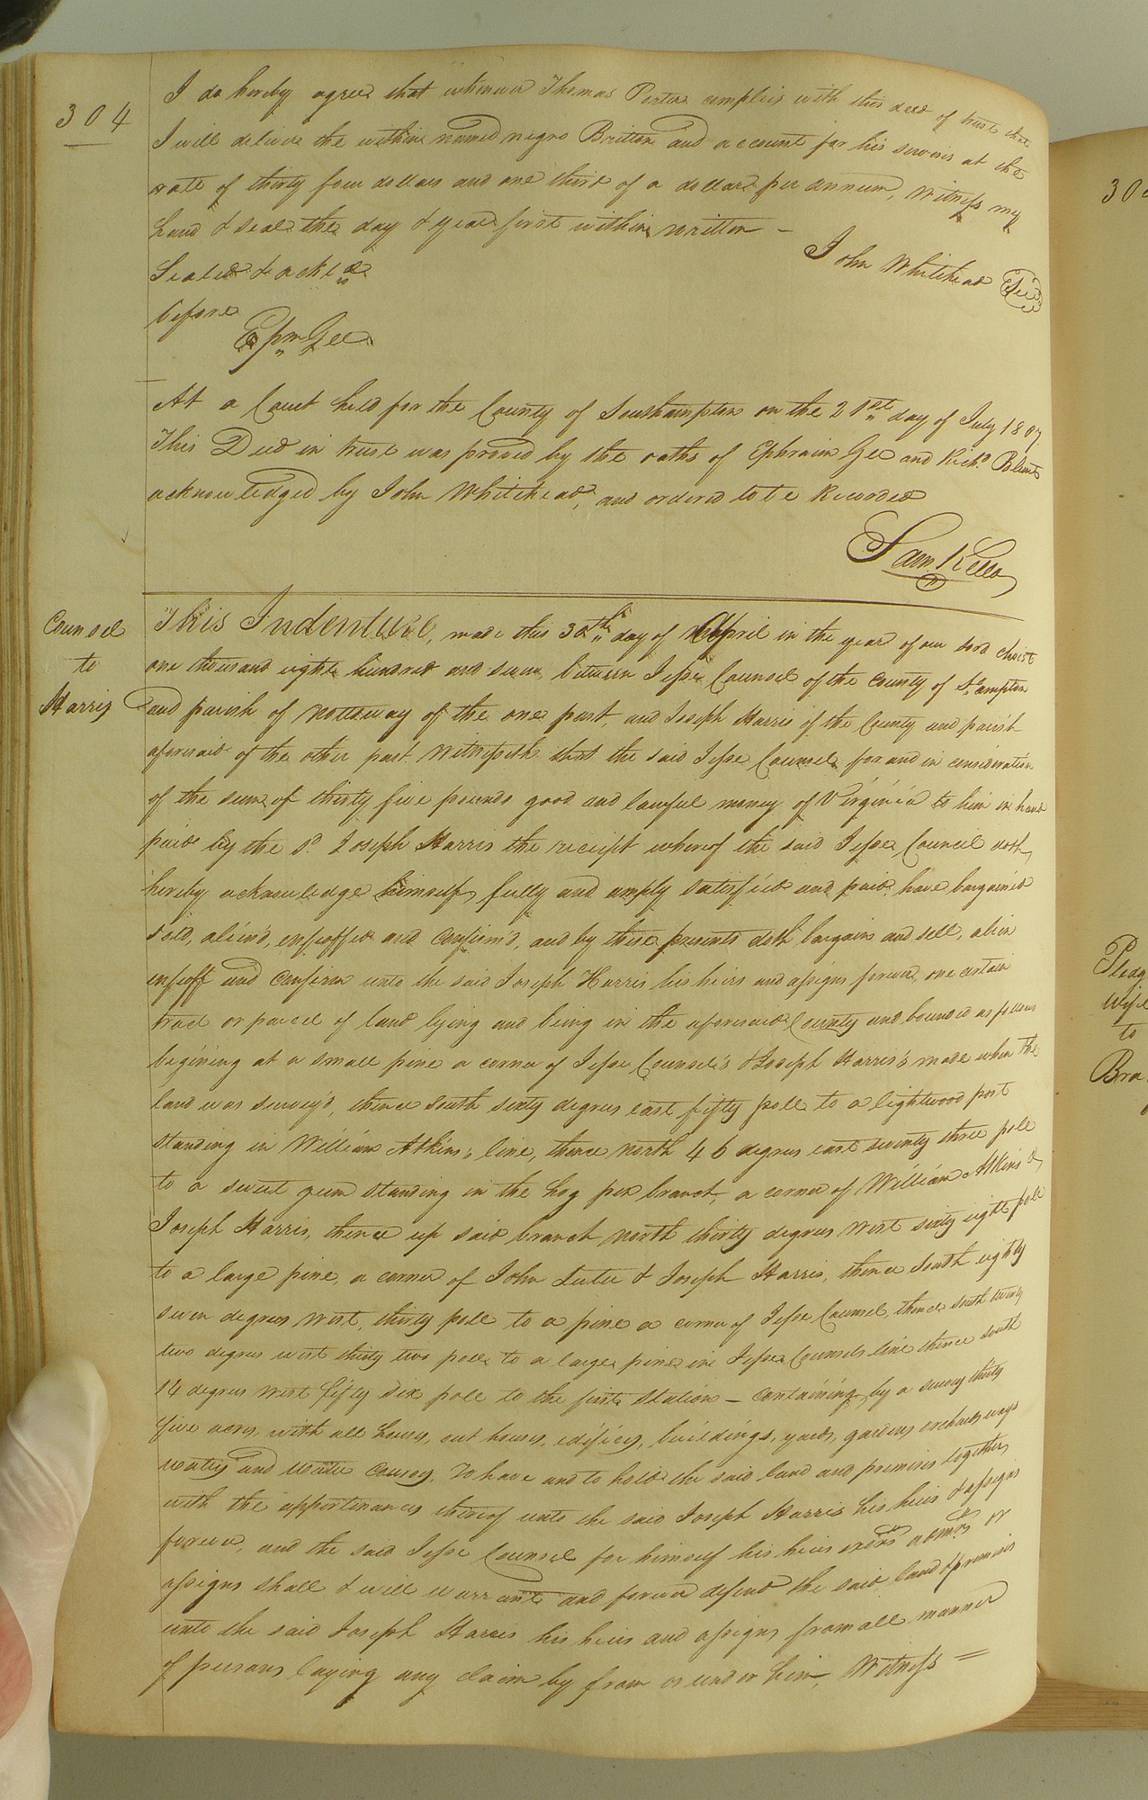 304
I do hereby agree that whenever Thomas Porter complies with this deed of trust that
I will deliver the within named negro Britton and account for his services at the
rate of thirty four dollars and one third of a dollar per annum, Witness my
hand & seal the day & year first within written –
John Whitehead Seal
Sealed & ackld
before
Epm Gee
At a Court held for the County of Southampton on the 21st day of July 1807
This Deed in trust was proved by the oaths of Ephraim Gee and Richd Blunt
acknowledged by John Whitehead, and ordered to be Recorded
Sam. Kello
Counsel
to
Harris
This Indenture, made this 30th day of April in the year of our Lord Christ
one thousand eight hundred and seven between Jesse Counsel of the County of St. ampton
and parish of Nottoway of the one part, and Joseph Harris of the County and parish
aforesaid of the other part Witnesseth that the said Jesse Counsel for and in consideration
of the sum of thirty five pounds good and lawful money of Virginia to him in hand
paid by the sd Joseph Harris the receipt whereof the said Jesse Council doth
hereby acknowledge himself fully and amply satisfied and paid, have bargained
sold, alien'd, enfeoffed and confirm'd, and by these presents doth bargain and sell, alien
enfeoff and confirm unto the said Joseph Harris his heirs and assigns forever, one certain
tract or parcel of land lying and being in the aforesaid County and bounded as follows
begining at a small pine a corner of Jesse Counsel's & Joseph Harris's made when the
land was survey'd, thence South sixty degrees east fifty pole to a lightwood post
standing in William Atkins, line, thence north 46 degrees east seventy three pole
to a sweet gum standing in the hog pen branch, a corner of William Atkins &
Joseph Harris, thence up said branch north thirty degrees west sixty eight pole
to a large pine, a corner of John & Joseph Harris, thence South eighty
seven degrees west, thirty pole to a pine a corner of Jesse Counsel, thence south twenty
two degrees west thirty two pole to a large pine in Jesse Counsels line thence south
14 degrees west fifty six pole to the first station – containing by a survey thirty
five acres, with all houses, out houses, edifices, buildings, yards, gardens orchards ways
waters and water courses, To have and to hold the said land and premises together
with the appertinances thereof unto the said Joseph Harris his heirs & assigns
forever, and the said Jesse Counsel for himself his heirs exors admrs or
assigns shall & will warrant and forever defend the said land & premises
unto the said Joseph Harris his heirs and assigns from all manner
of persons laying any claim by from or under him, Witness =
30
Wife
to
Bra